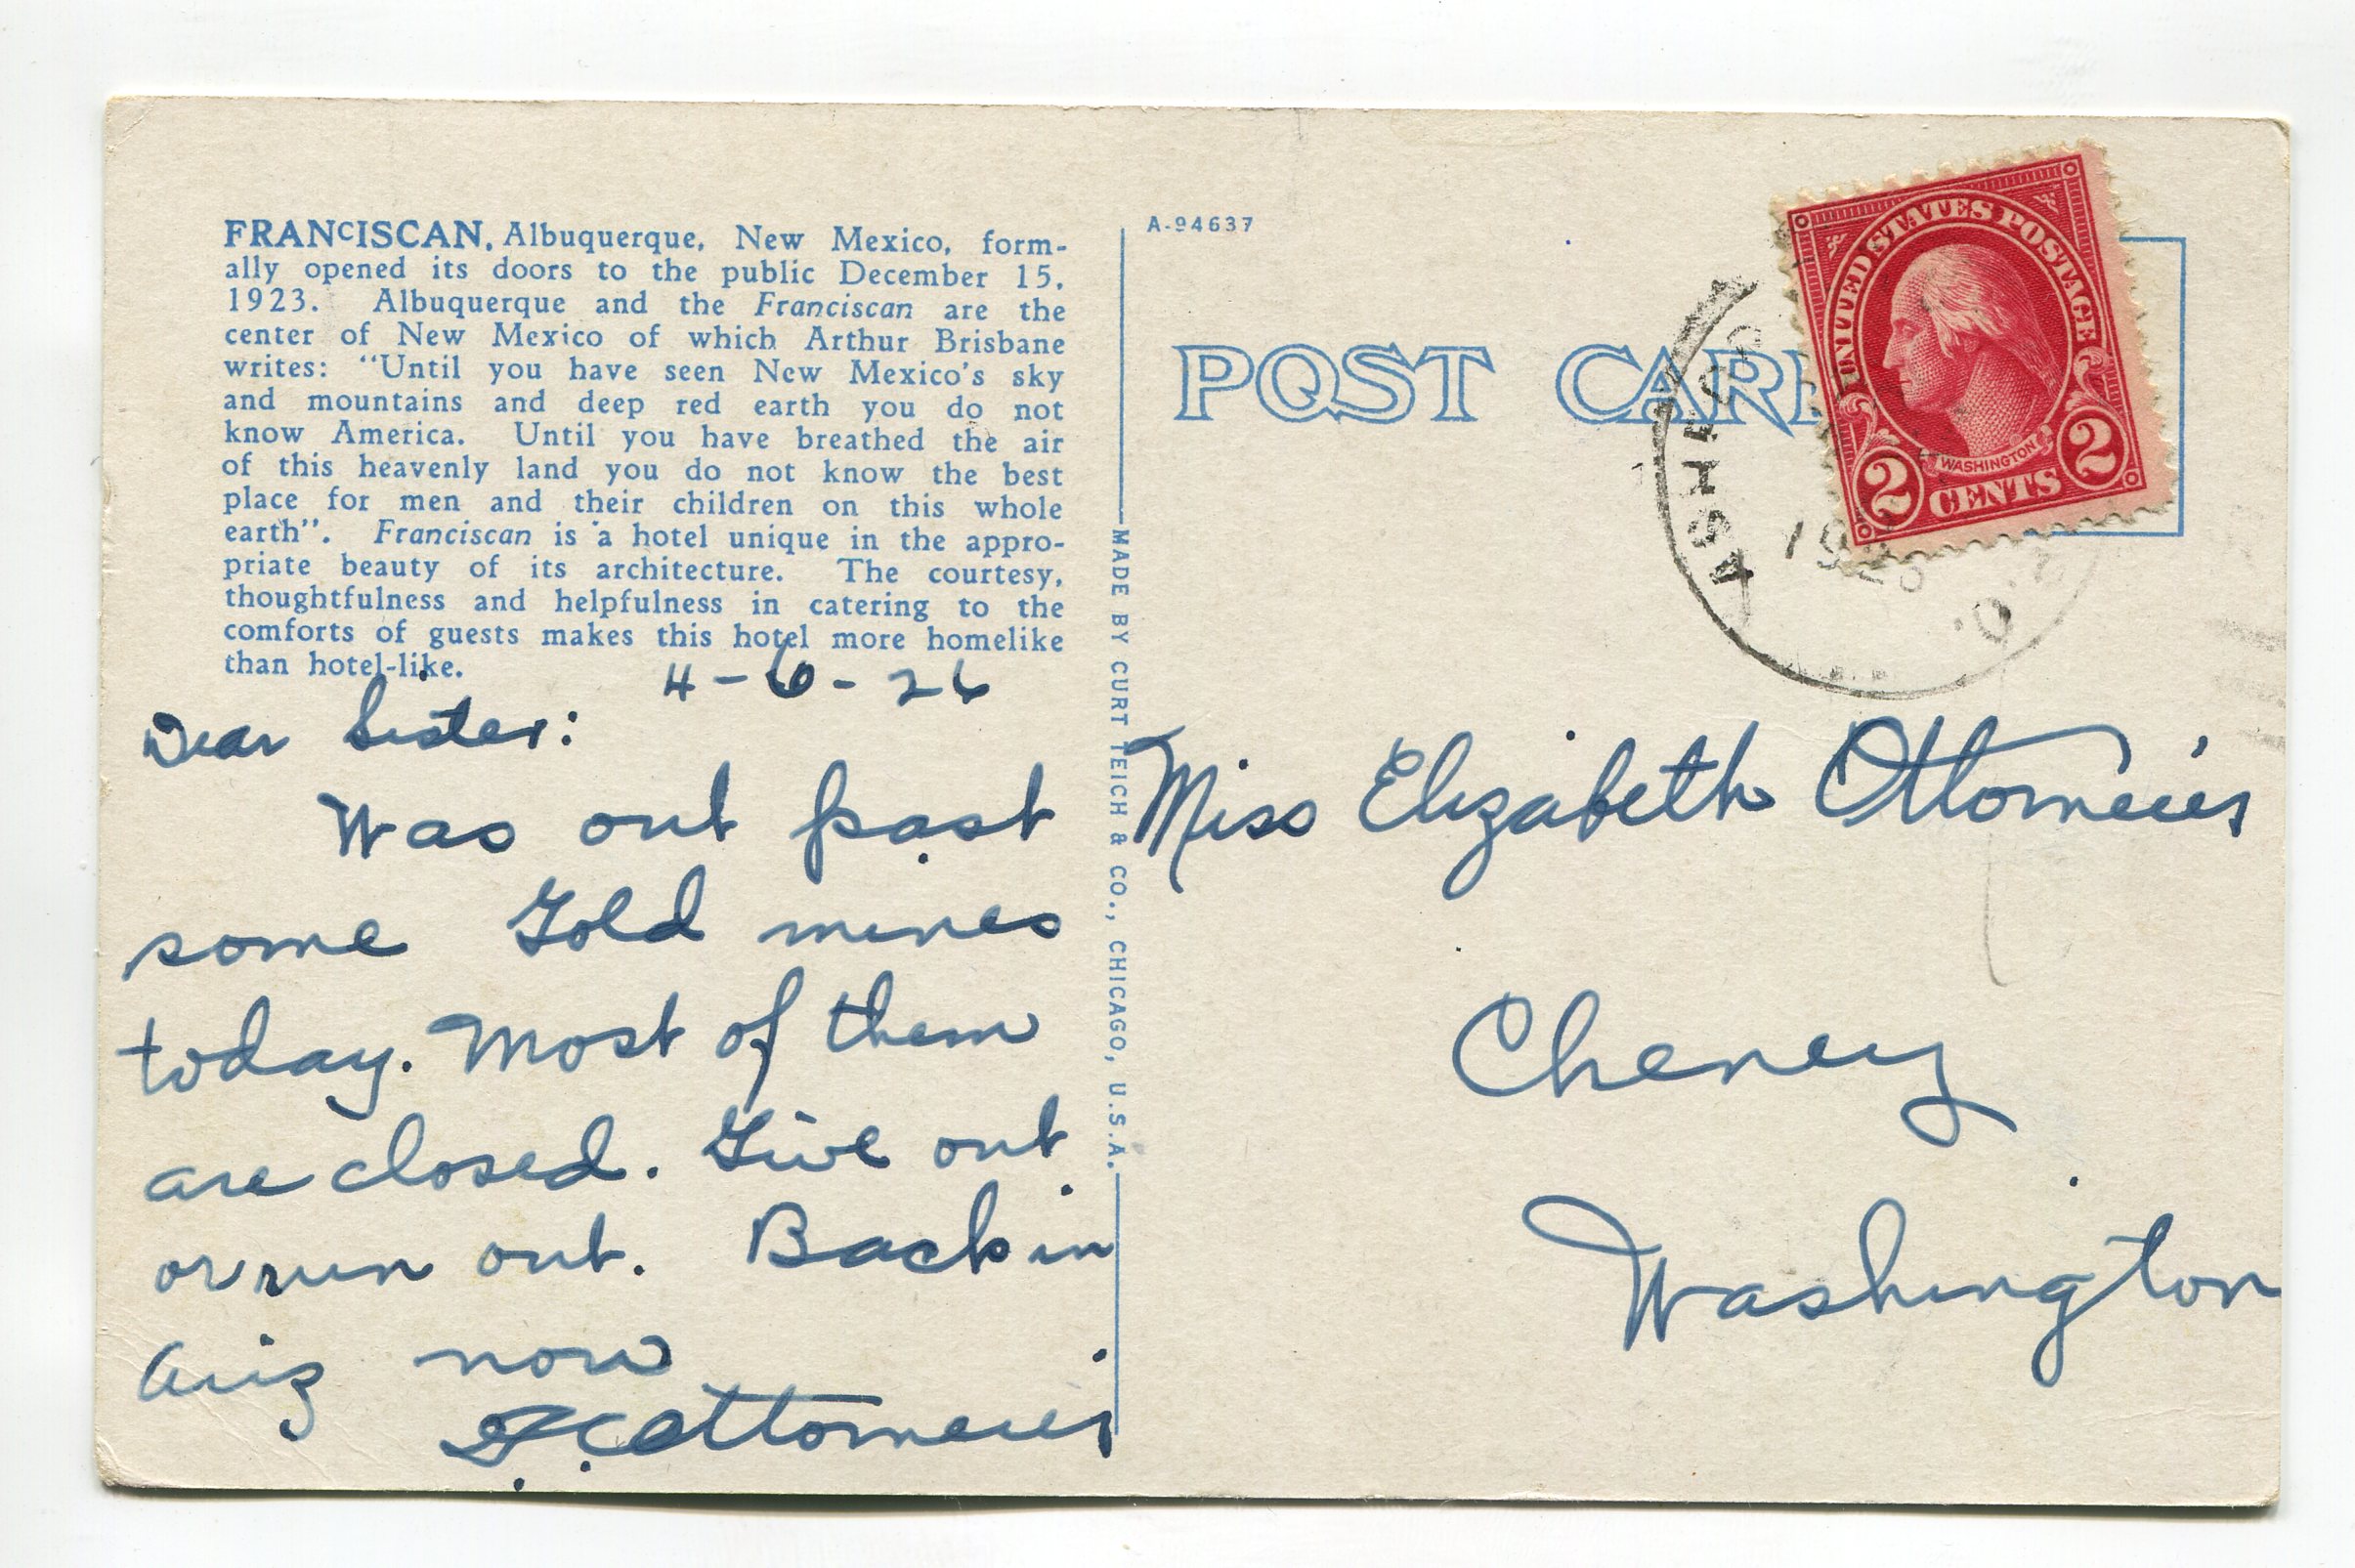 FRANCISCAN, Albuquerque, New Mexico, form-
ally opened its doors to the public December 15,
1923. Albuquerque and the Franciscan are the
center of New Mexico of which Arthur Brisbane
writes: "Until you have seen New Mexico's sky
and mountains and deep red earth you do not
know America. Until you have breathed the air
of this heavenly land you do not know the best
place for men and their children on this whole
earth". Franciscan is a hotel unique in the appro-
priate beauty of its architecture. The courtesy,
thoughtfulness and helpfulness in catering to the
comforts of guests makes this hotel more homelike
than hotel-like.
4-6-26
Dear Sister:
Was out past
some Gold mines
today. Most of them
are closed. Give out
or run out. Back in
Ariz now
Ottomeier
MADE BY CURT TEICH & CO., CHICAGO, U.S.A.
A-94637
POST CARD
UNITED STATES POSTAGE
WASHINGTON
2 CENTS 2
ASH FO
1926
Miss Elizabeth Ottomeier
Cheney
Washington